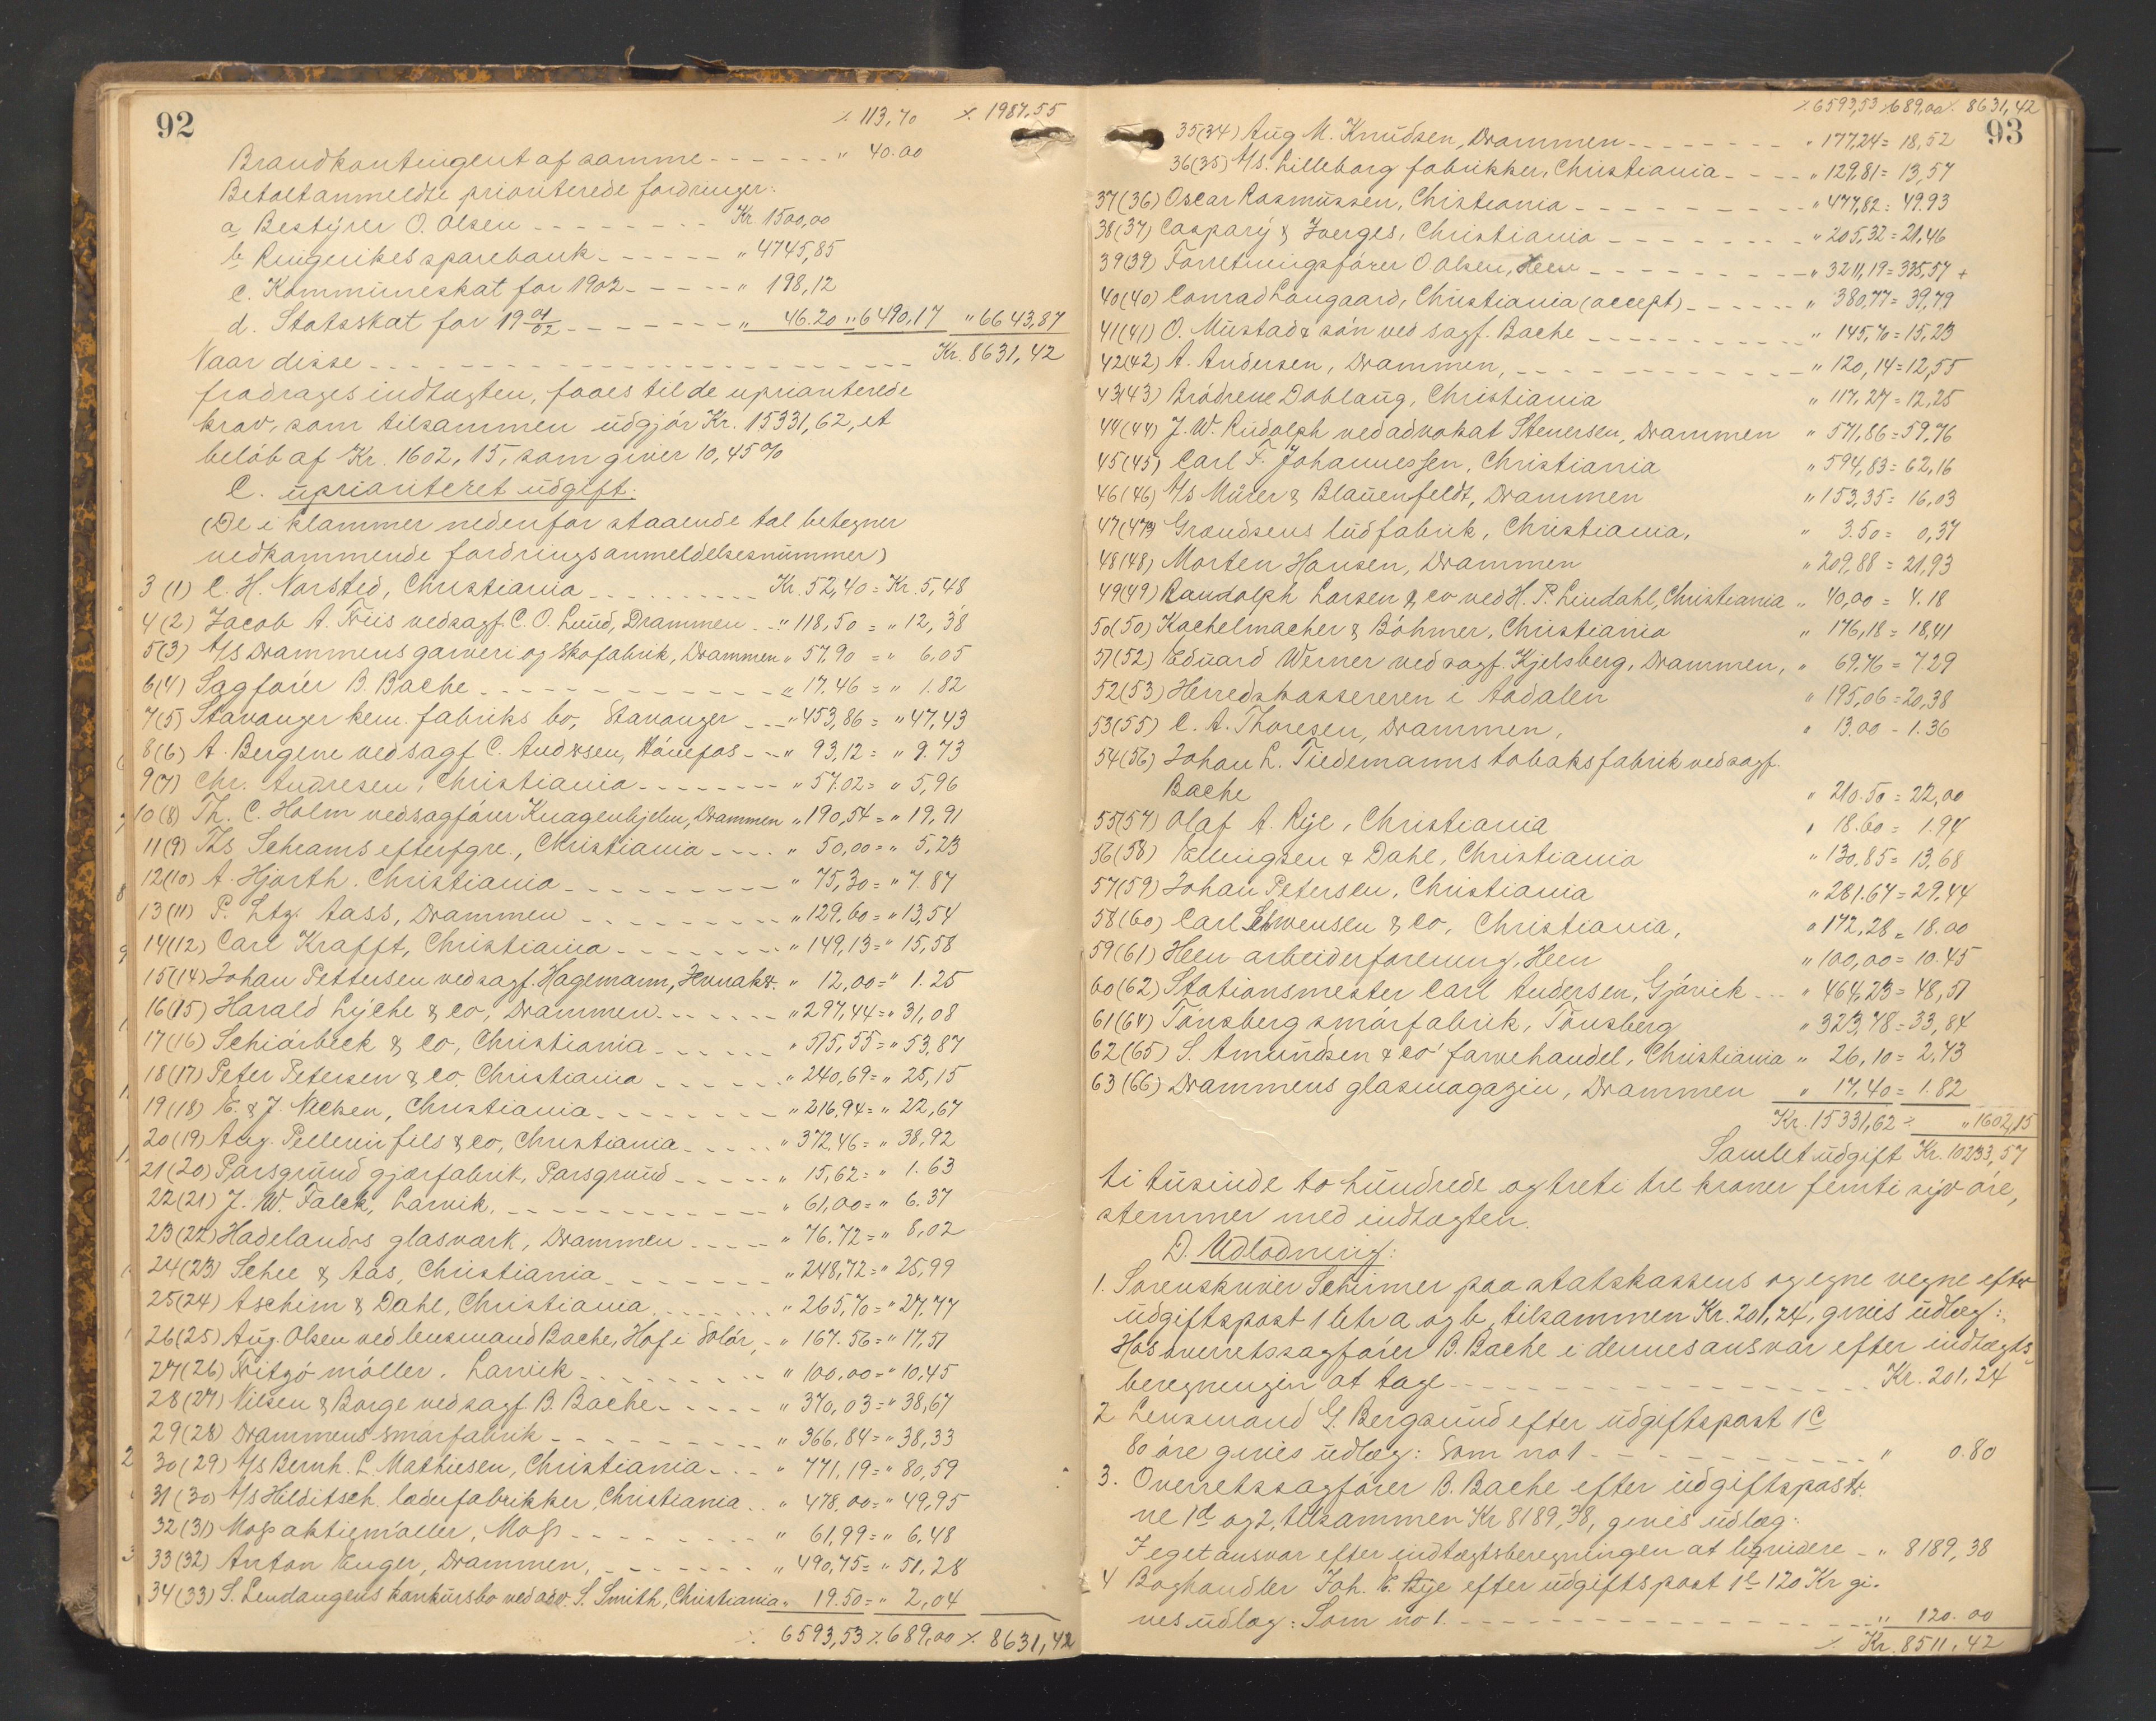 92
٪ 113,70 ٪ 1987,55
Brandkontingent af samme - - - - - - " 40.00
Betalt anmeldte prioriterede fordringer:
a Bestyrer O. Olsen - - - - - - - Kr 1500,00
b Ringerikes sparebank - - - - - " 4745,85
c. Kommuneskat for 1902 - - - - - " 198,12
d. Statsskat for 19 01/02 - - - - - - - " 46.20 " 6490,17 " 6643,87
Naar disse - - - - - - - - - - Kr. 8631,42
fradrages indtægten, faaes til de uprioriterede
krav, som tilsammen udgjör Kr. 15331,62, et
belöb af Kr. 1602,15, som giver 10,45 %
C. uprioriteret udgift:
(De i klammer nedenfor staaende tal betegner
vedkommende fordringsanmeldelsesnummer)
3 (1) C. H. Norsted, Christiania - - - - - Kr. 52,40 = Kr. 5,48
4 (2) Jacob A. Friis ved sagf. C. O. Lund, Drammen - - " 118,50 = " 12,38
5(3) A/S Drammens garveri og Skofabrik, Drammen " 57,90 = " 6,05
6(4) Sagförer B. Bache - - - - - - - " 17.46 = " 1.82
7(5) Stavanger kem. fabriks bo, Stavanger - - - " 453,86 = " 47,43
8(6) A. Bergene ved sagf C. Andersen, Hönefos - - " 93,12 = " 9.73
9(7) Chr. Andresen, Christiania - - - - - - - " 57.02 = " 5,96
10(8) Th. C. Holm ved sagförer Knagenhjelm, Drammen " 190,54 = " 19,91
11(9) Ths Schrams efterfgre., Christiania - - - - " 50,00 = " 5,23
12(10) A. Hjorth. Christiania - - - - - - - - " 75,30 = " 7.87
13(11) P. Ltz. Aass, Drammen - - - - - - - " 129.60 = " 13,54
14(12) Carl Krafft, Christiania - - - - - - " 149,13 = " 15,58
15(14) Johan Pettersen ved sagf. Hagemann, " 12,00 = " 1.25
16(15) Harald Lyche & Co, Drammen - - - - - " 297,44 = " 31,08
17(16) Schiörbeck & Co, Christiania - - - - - " 515,55 = " 53,87
18(17) Peter Petersen & Co. Christiania - - - - - " 240,69 = " 25,15
19(18) E. & J. Nielsen, Christiania - - - - - - " 216,94 = " 22,67
20(19) Aug. Pellerin fils & Co, Christiania - - - - " 372,46 = " 38,92
21(20) Porsgrund gjærfabrik, Porsgrund - - - - - " 15,62 = " 1.63
22(21) J. W. Falck, Larvik. - - - - - - - - - " 61,00 = " 6.37
23(22) Hadelands glasværk, Drammen - - - - " 76.72 = " 8,02
24(23) Schee & Aas, Christiania - - - - - - " 248,72 = " 25,99
25(24) Aschim & Dahl, Christiania - - - - - " 265,70 = " 27,77
26(25) Aug. Olsen ved lensmand Bache, Hof i Solör, - " 167.56 = " 17,51
27(26) Fritzö möller. Larvik - - - - - - - " 100,00 = " 10,45
28(27) Nilsen & Borge ved sagf. B. Bache - - - - - " 370,03 = " 38,67
29(28) Drammens smörfabrik - - - - - - - " 366,84 = " 38,33
30(29) A/S Bernh. L. Mathiesen, Christiania - - - " 771,19 = " 80,59
31(30) A/S Hilditsch læderfabrikker, Christiania - - " 478,00 = " 49,95
32(31) Moss aktiemöller, Moss - - - - - - - " 61,99 = " 6,48
33(32) Anton Enger, Drammen, - - - - - - - " 490,75 = " 51,28
34(33) S. Lendangens konkursbo ved adv. S. Smith, Christiania " 19.50 = " 2,04
٪ 6593,53 ٪ 689,00 ٪ 8631,42
٪ 6593,53 ٪ 689,00 ٪ 8631,42
93
35(34) Aug M. Knudsen, Drammen - - - - - - - - " 177,24 = 18,52
36(35) A/S. Lilleborg fabrikker, Christiania - - - - " 129,81 = 13,57
37(36) Oscar Rasmussen, Christiania - - - - - - - - " 477,82 = 49.93
38(37) Caspary & Joerges, Christiania - - - - - - - " 205,32 = 21,46
39(39) Forretningsförer O Olsen, Heen - - - - - - - - " 3211,19 = 335,57 +
40(40) Conrad Langaard, Christiania (accept) - - - - - " 380,77 = 39,79
41(41) O. Mustad & sön ved sagf. Bache - - - - - - - " 145,70 = 15,23
42(42) A. Andersen, Drammen, - - - - - - - - - " 120,14 = 12,55
43(43) Brödrene Dobloug, Christiania " 117,27 = 12,25
44(44) J. W. Rudolph ved advokat Stenersen, Drammen " 571,86 = 59,76
45(45) Carl F. Johannessen, Christiania " 594,83 = 62,16
46(46) A/s Mürer & Blauenfeldt, Drammen " 153,35 = 16,03
47(47) Grandsens ludfabrik, Christiania, " 3.50 = 0,37
48(48) Morten Hansen, Drammen " 209,88 = 21,93
49(49) Randolph Larsen & co ved H. P. Lindahl, Christiania " 40,00 = 4.18
50(50) Kachelmacher & Böhmer, Christiania " 176,18 = 18,41
51(52) Eduard Werner ved sagf. Kjelsberg, Drammen, " 69.76 = 7.29
52(53) Herredskassereren i Aadalen " 195,06 = 20,38
53(55) C. A. Thoresen, Drammen, " 13.00 - 1.36
54(56) Johan L. Tiedemanns tobaksfabrik ved sagf.
Bache " 210.50 = 22,00
55(57) Olaf A. Rye, Christiania " 18.60 = 1.94
56(58) Ellingsen & Dahl, Christiania " 130,85 = 13,68
57(59) Johan Petersen, Christiania " 281.67 = 29.44
58(60) Carl Schwensen & Co, Christiania, " 172,28 = 18.00
59(61) Heen arbeiderforening, Heen " 100,00 = 10.45
60(62) Stationsmester Carl Andersen, Gjövik - - - " 464,23 = 48,51
61(64) Tönsberg smörfabrik, Tönsberg " 323,78 = 33,84
62(65) S. Amundsen & Co' farvehandel, Christiania " 26,10 = 2,73
63(66) Drammens glasmagazin, Drammen " 17,40 = 1.82
Kr. 15331,62 = " 1602,15
Samlet udgift Kr. 10233,57
ti tusinde to hundrede og treti tre kroner femti syv öre,
stemmer med indtægten.
D. Udlodning:
1. Sorenskriver Schirmer paa statskassens og egne vegne efter
udgiftspost 1 litr a og b, tilsammen Kr. 201,24, gives udlæg:
Hos overretssagförer B. Bache i dennes ansvar efter indtægts
beregningen at tage - - - - - - - - - - Kr. 201,24
2 Lensmand G. Bergsund efter udgiftspost 1 c
80 öre gives udlæg: Som no 1 - - - - - - - - " 0.80
3. Overretssagförer B. Bache efter udgiftsposter
ne 1d og 2, tilsammen Kr 8189,38, gives udlæg:
I eget ansvar efter indtægtsberegningen at likvidere - " 8189,38
4 Boghandler Joh. E. Rye efter udgiftspost 1e 120 Kr gi-
ves udlæg: Som no 1. - - - - - - - - - - " 120.00
٪ Kr. 8511,42